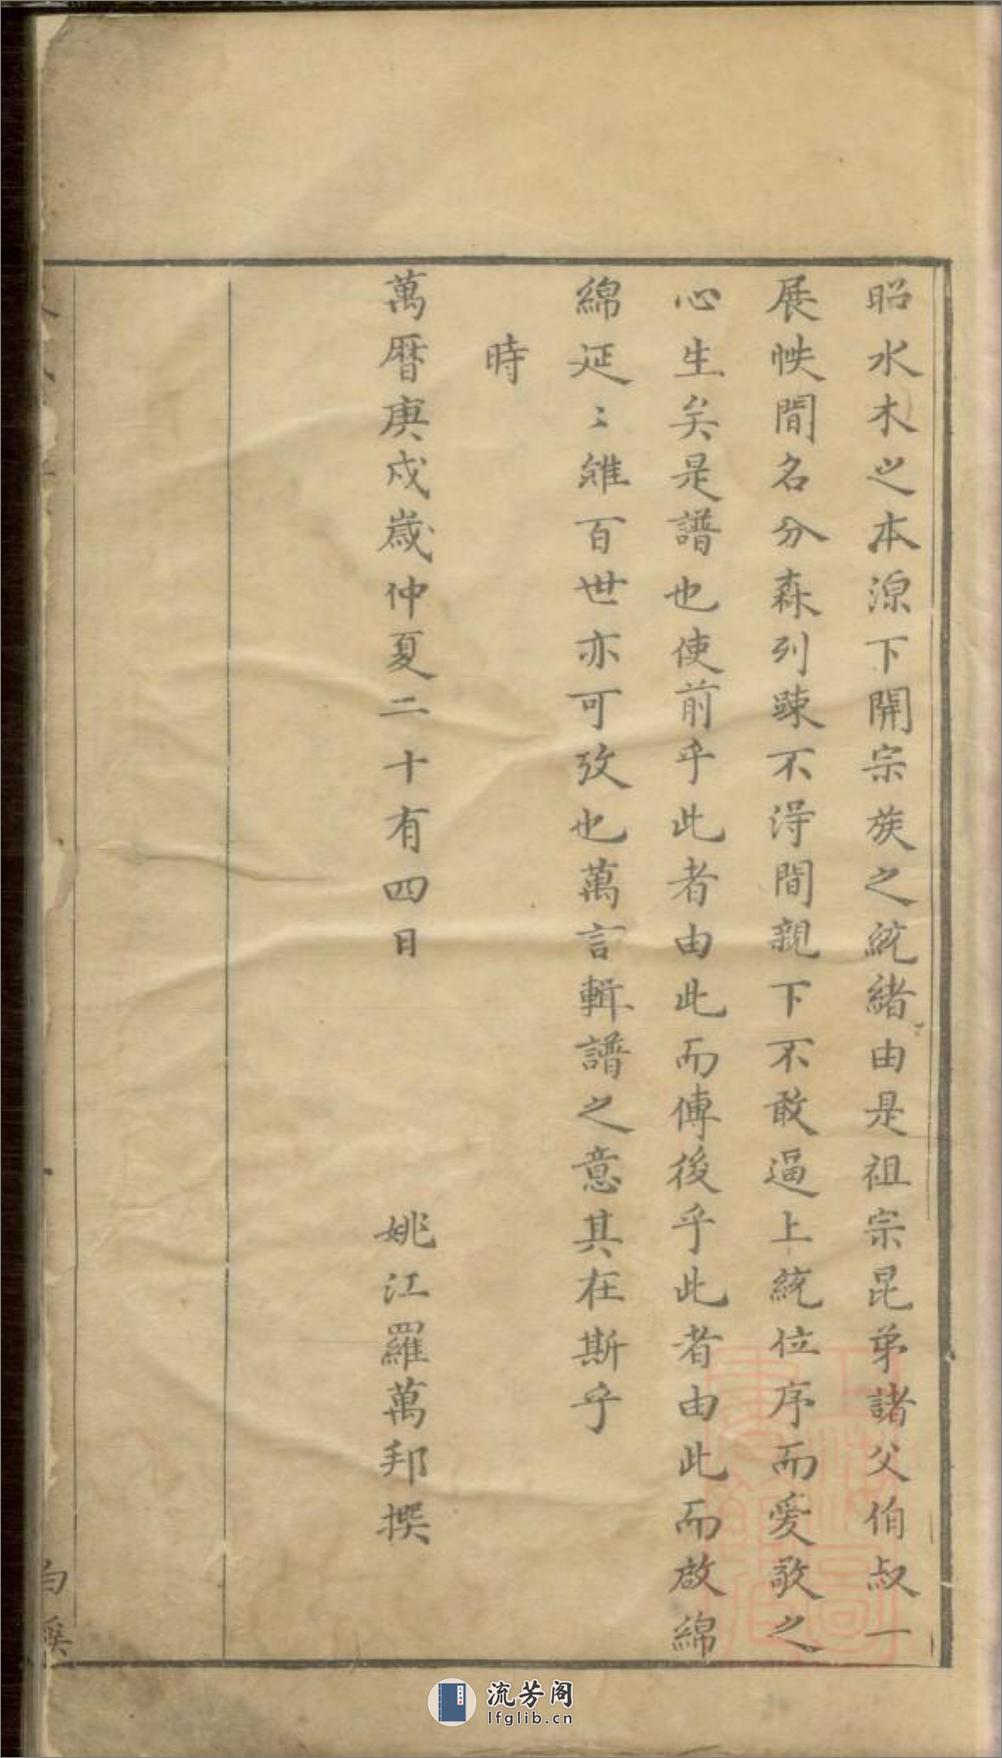 昭水木之本源下開宗族之統緒由是祖宗昆弟諸父伯叔一
展帙間名分森列踈不得間親下不敢逼上統位序而愛敬之
心生矣是譜也使前乎此者由此而傳後乎此者由此而啟綿
綿延〻雖百世亦可攷也萬言輯譜之意其在斯乎
時
萬曆庚戌歲仲夏二十有四日 姚江羅萬邦撰
流芳阁
lfglib.cn